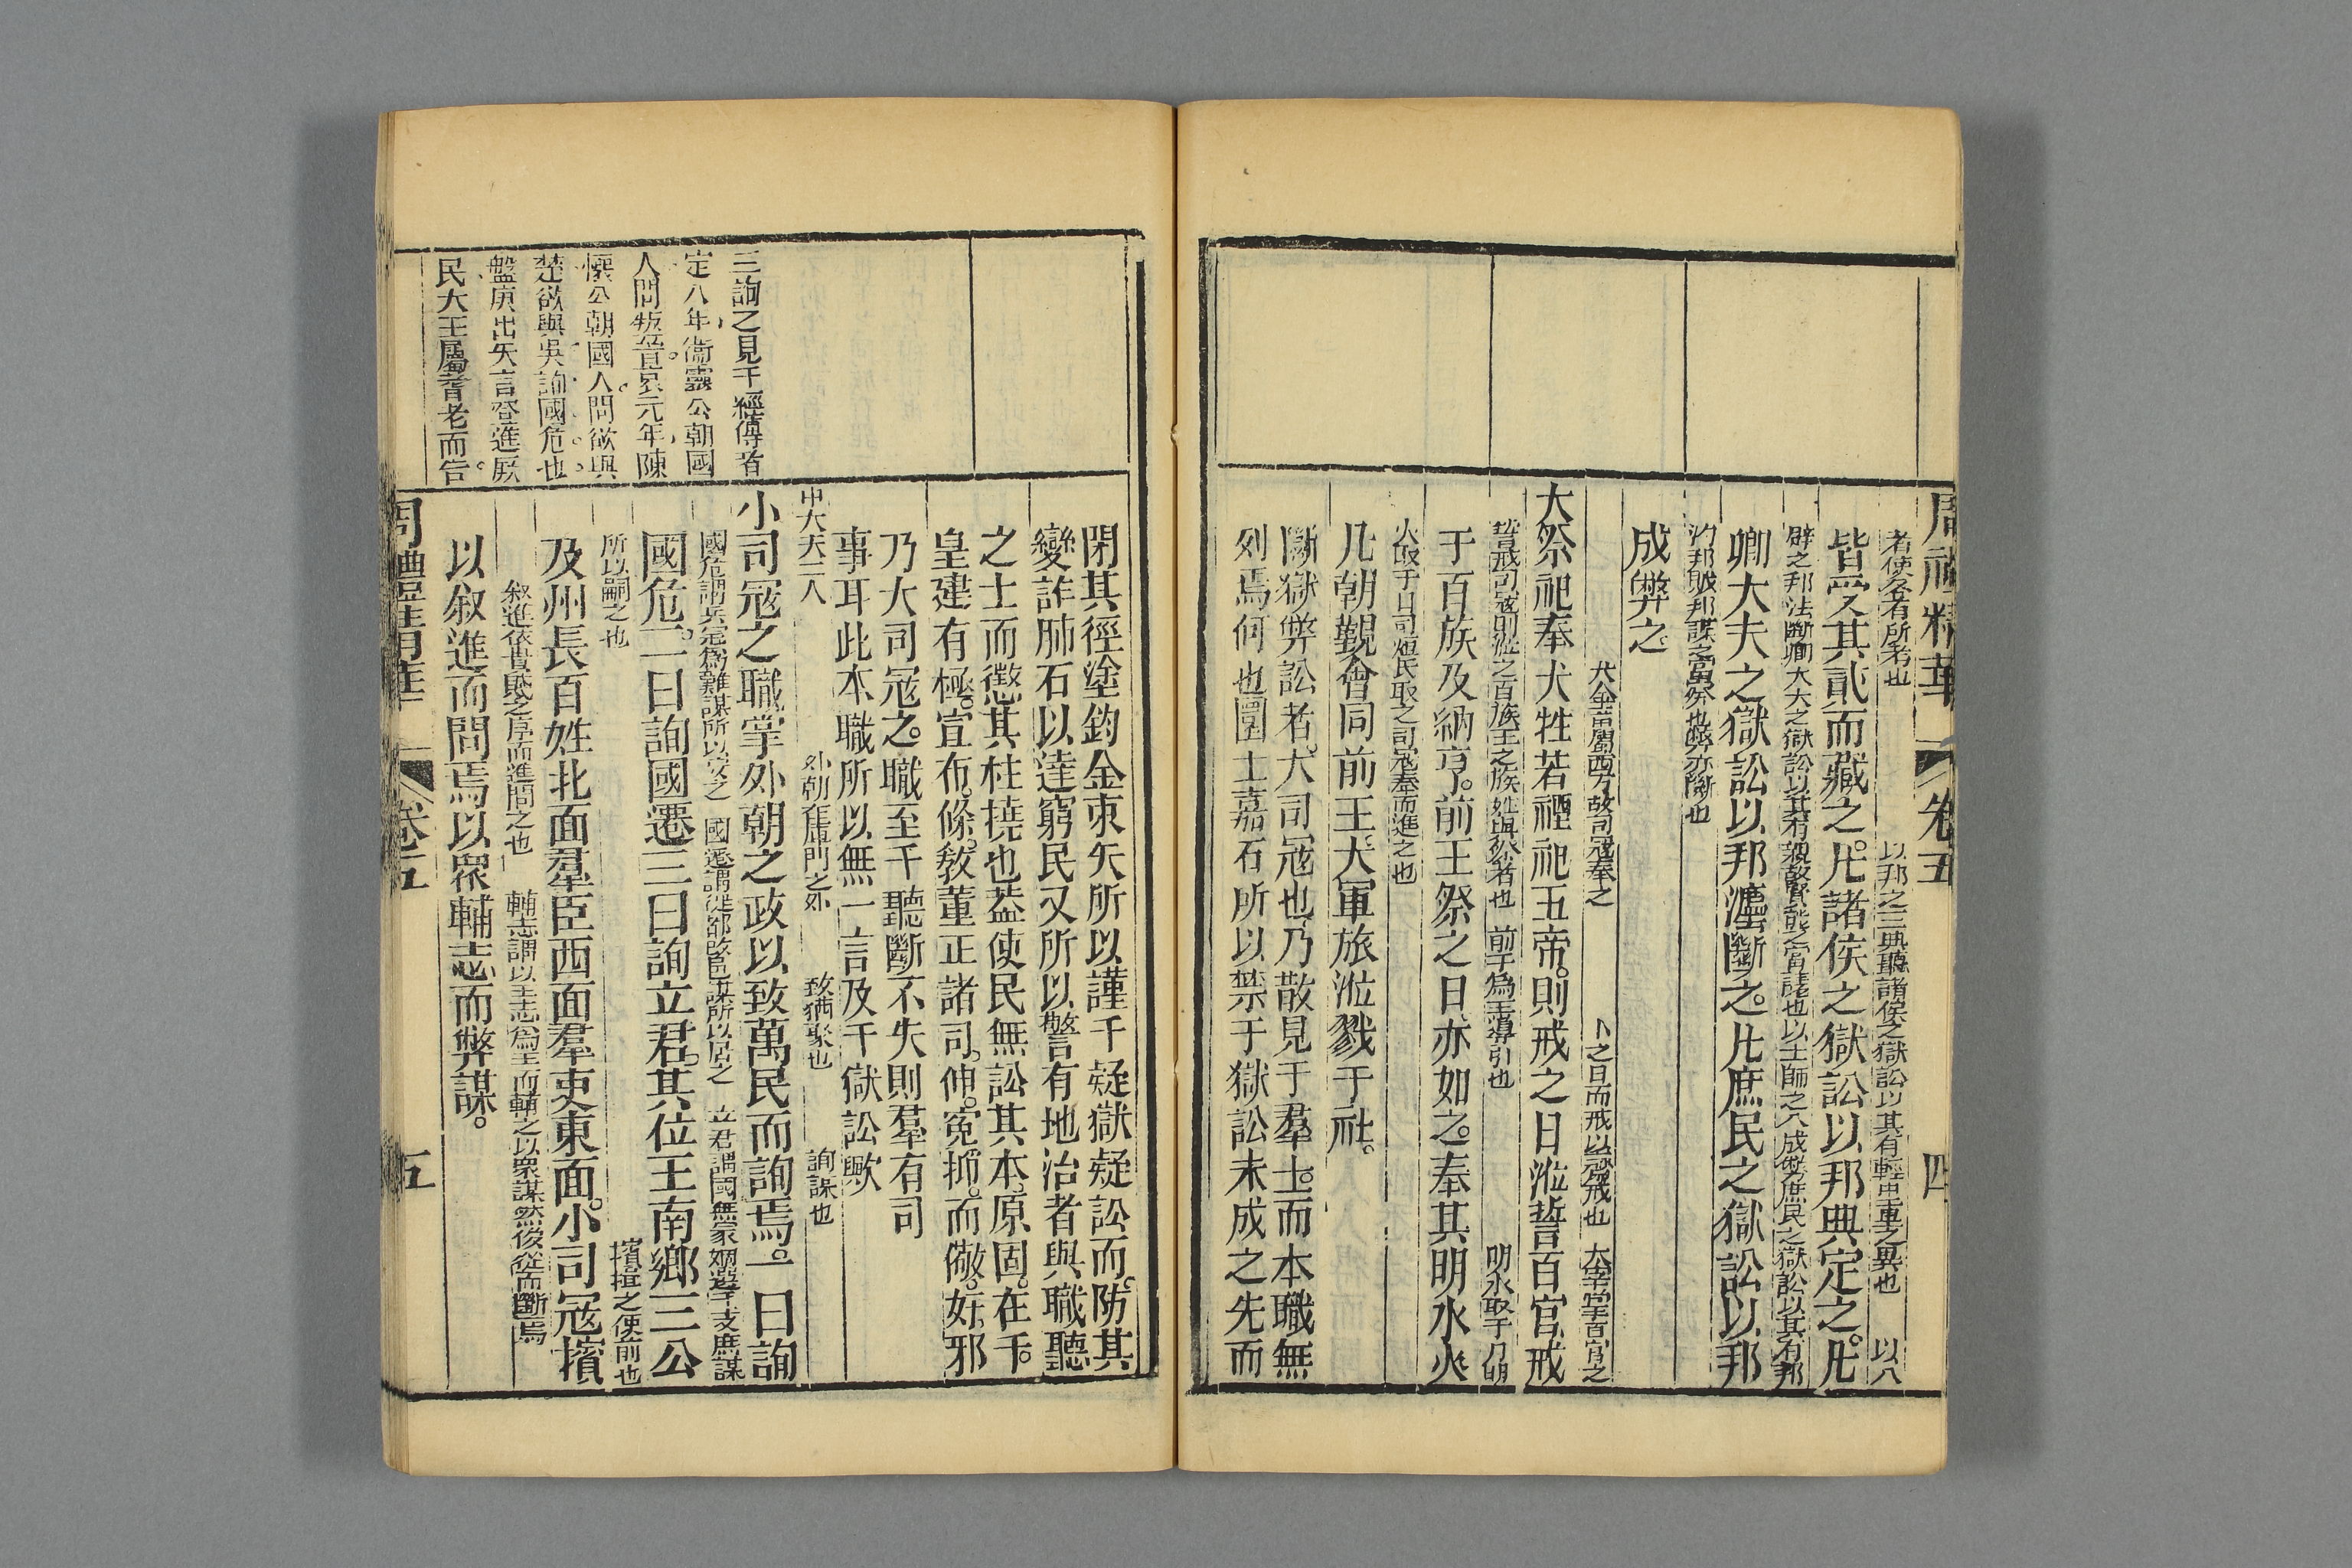 周禮精華 卷五 四
者使各有所考也 以邦之三典聽諸侯之獄訟以其有輕中重之異也 以八
皆受其貳而藏之。凡諸侯之獄訟以邦典定之。凡
辟之邦法斷卿大夫之獄訟以其有親故賢能之當議也以士師之八成弊庶民之獄訟以其有邦
卿大夫之獄訟以邦灋斷之。凡庶民之獄訟以邦
汋邦賊邦謀之當禁也弊亦斷也
成弊之。
犬金畜屬西方故司寇奉之 卜之日而戒以致戒也 大宰掌百官之
大祭祀奉犬牲若禋祀五帝則戒之日涖誓百官戒
誓戒司寇則涖之百族王之族姓與祭者也 前王為王導引也 明水取于月明
于百族及納亨。前王祭之日亦如之。奉其明水火
火取于日司烜氏取之司寇奉而進之也
凡朝覲會同前王大軍旅涖戮于社。
斷獄弊訟者。大司寇也乃散見于羣士。而本職無
列焉何也圜土嘉石所以禁于獄訟未成之先而
閉其徑塗鈞金束矢所以謹于疑獄疑訟而。防其
變詐肺石以達窮民又所以警有地治者與職聽
之士而懲其枉撓也葢使民無訟其本。原固。在于。
皇建有極。宣布。條。敎董正諸司。伸。寃抑。而儆。奸邪
乃大司寇之。職至于聽斷不失則羣有司
事耳此本職所以無一言及于獄訟歟
中大夫二人 外朝在庫門之外 致猶聚也 詢謀也
三詢之見于經傳者
小司寇之職掌外朝之政以致萬民而詢焉。一曰詢
定八年衞靈公朝國
國危謂兵寇為難謀所以安之 國遷謂徙都改邑謀所以居之 立君謂國無冢嫡選于支庶謀
人問叛晉哀元年陳
國危。二曰詢國遷三曰詢立君。其位王南鄉三公
懷公朝國人問欲與
所以嗣之也 擯揖之使前也
楚欲與吳詢國危也
及州長百姓北面羣臣西面羣吏東面。小司寇擯
盤庚出矢言登進厥
敘進依貴賤之序而進問之也 輔志謂以王志為主而輔之以衆謀然後從而斷焉
民大王屬耆老而告
以敘進而問焉以衆輔志而弊謀。
周禮精華 卷五 五